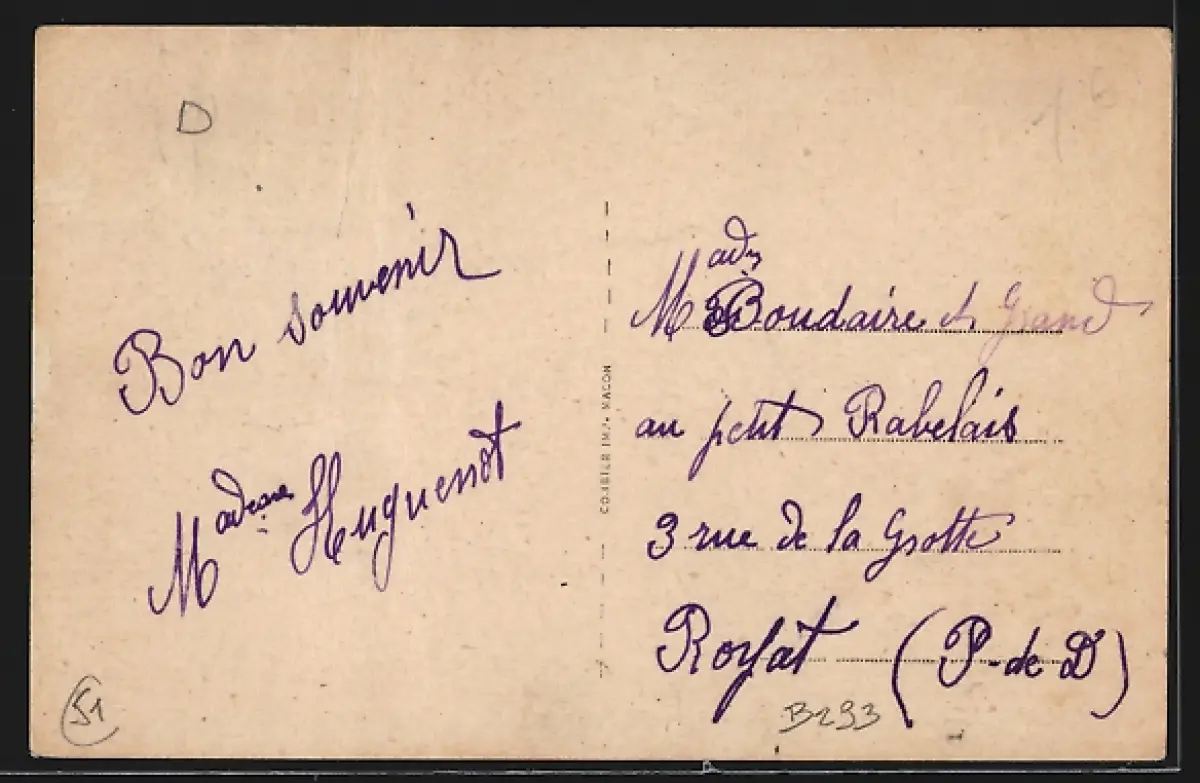 D
Bon souvenir
Madame Huguenot
51
COMBIER IMP. MACON
Mades Boudaire et Grand
au petit Rabelais
3 rue de la Grotte
Royat (P-de D)
B293